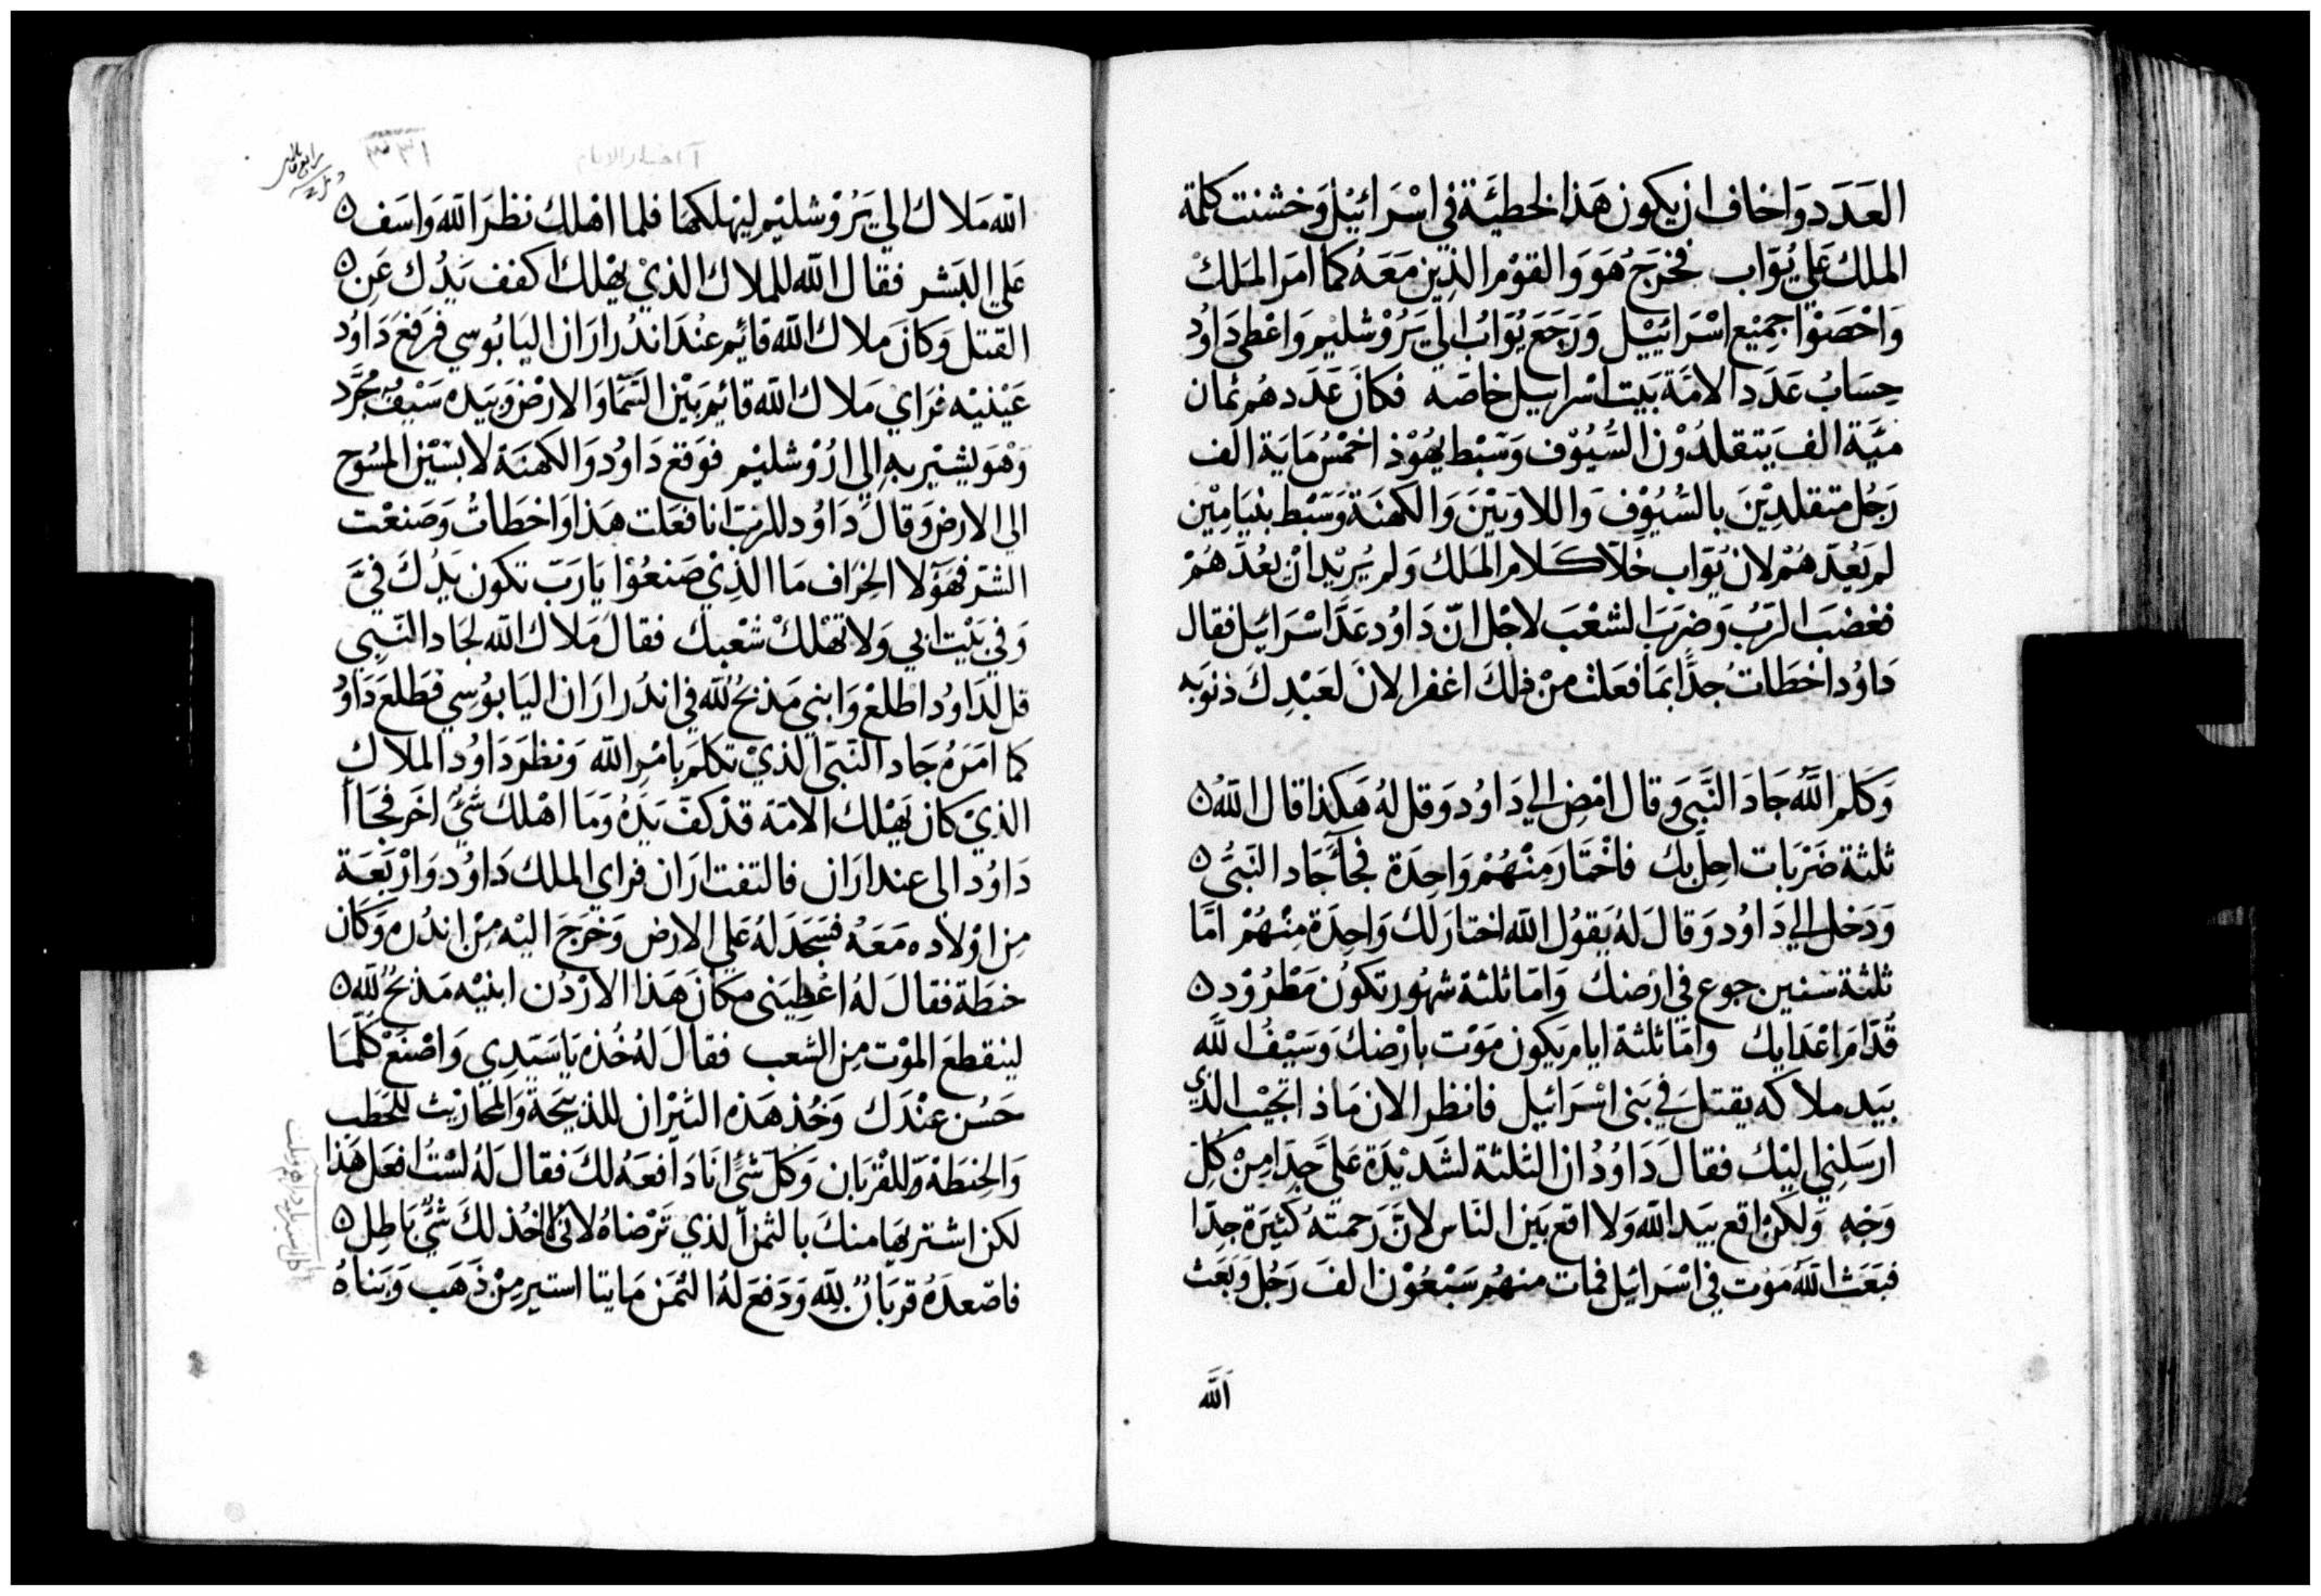 العَدَد وَاخاف ان يكون هَذا الخطيَّة في اسْرَائيْل وَخشنت كلمة
الملك عَلي يُوَّاب فخرَجَ هُوَ وَالقوْم الذِين مَعَهُ كما امَر المَلكْ
وَاحْصَوْا جميْع اسْرَائيْل وَرَجَعَ يُوَّابُ الي يَرُوْشليْم وَاعْطى دَاوُد
حِسَابُ عَدَد الامَّة بَيت اسْراييل خاصَه فكانَ عَدَدهُم ثمان
ميَّة الف يَتقلدُوْن السُّيُوْف وَسَبْط يهُوْذا خمْسُمايَة الف
رَجُل متقلدِيْنَ بالسُّيُوْف وَاللاويّيْنَ وَالكهنَة وَسَبْط بنيَامِيْن
لم يَعُدّهُمْ لان يُوّاب خلا كلام المَلك وَلم يُريْد انْ يعُدَّهُمْ
فغضبَ الرَبُّ وَضرَبَ الشعْبَ لاجْل انّ دَاوُد عَدَّ اسْرَائيل فقال
دَاوُد اخطَات جدًّا بمَا فعَلت منْ ذلكَ اغفر الانَ لعَبْدِكَ ذنوَبه
وَكلم اللّهُ جَادَ النَّبيَ وَقال امْضِ الي دَاوُد وَقل لهُ هَكذا قال اللّهُ ن
ثلثة ضَرْبَات احِل بك فاخْتار مِنْهُمْ وَاحِدَة فجآ جَاد النَبيُّ ن
وَدَخل الي دَاوُد وَقالَ لهُ يَقوُل اللّه اختار لكَ وَاحِدَة مِنْهُمْ امَّا
ثلثة سَنين جوع في ارْضكَ وَامّا ثلثة شهُور تكوُن مَطْرُوْد ن
قدّامَ اعْدَايك وامّا ثلثة ايام يَكون مَوْت بارْضكَ وَسَيْفُ اللّه
بيَد ملاكه يقتل في بَنى اسْرَائيل فانظر الان مَاذا تجيْب الذي
ارسَلني اليْكَ فقالَ دَاوُدُ ان الثلثة لشَديْدَة عَليَّ جدّا مِنْ كُلّ
وَجْهٍ وَلكنْ اقع بيَد اللّه وَلا اقع بَيْن النَاس لانَّ رَحمتهُ كثيْرَة جدّا
فبَعَث اللّهُ مَوْت في اسْرَائيل فمات منهُم سَبْعُوْن الفَ رَجُل وَبَعَث
اللّه
آ اخبار الايام
٣٣١
اللّه مَلاك الي يَرُوْشليْم ليهْلكهَا فلما اهْلك نظرَ اللّه وَاسَف ن
عَلي البَشر فقال اللّه للملاك الذيْ يهْلك اكفف يَدُك عَن ن
القتل وَكانَ مَلاك اللّه قايم عنْدَ اندُر ارَان اليَابُوسي فرَفعَ دَاوُد
عَيْنيْه فرَاي مَلاك اللّه قائِم بَيْن السَّمَا وَالارْض وَبيَده سَيْف مُجَرَّد
وَهْوَ يشيْر بهِ الي ارُوْشليْم فوَقع دَاوُد وَالكهنَة لابسيْن المسُوح
الي الارض وَقالَ دَاوُد للرَبّ انا فعَلت هَذا وَاخطَاتُ وَصَنعْت
الشرّ فهَؤلا الخرَاف مَا الذِيْ صَنعُوْا يَارَبّ تكون يَدُكَ فيَّ
وَفي بَيْت ابي وَلا تهْلكْ شعْبك فقال مَلاك اللّه لجَاد النّبيِ
قل لدَاوُد اطلعْ وَابني مَذبحُ للّه في اندُر ارَان اليَابوُسي فطَلعَ دَاوُد
كما امَرَهُ جَاد النَّبيّ الذيْ تكلمَ بامْر اللّه وَنظرَ دَاوُد الملاك
الذيْ كان يَهْلك الامَّة قدْ كفّ يَدَهُ وَمَا اهْلك شئٌ اخَر فجَاا
دَاوُد الى عند ارَان فالتفت ارَان فراي الملك دَاوُد وَارْبَعَة
مِن اوْلاده مَعَهُ فسَجَدَ لهُ عَلي الارض وَخرَجَ اليْه مِنْ اندُره وَكان
حنطَة فقالَ لهُ اعْطيَنى مكانَ هَذا الارْدُن ابنيْه مَذبَحُ للّه ن
لينقطعَ الموْت مِن الشعب فقالَ لهُ خُذه يَاسَيّدِي وَاصْنعْ كلّمَا
حَسُن عنْدَك وَخُذ هَذه الثيْرَان للذبيْحَة وَالمحَاريْث للحَطب
وَالحِنطَة وَللقرْبَان وَكلّ شَئٍ انَا دَافعَهُ لكَ فقالَ لهُ لسْت افعَل هَذا
لكن اشتريهَا منكَ بالثمن الذي تَرْضاهُ لانى لا اخُذ لكَ شئٌ بَاطِل ن
فاصْعدَهُ قربَانٌ للّه وَدَفعَ لهُ الثمَن مَايتا استير مِنْ ذَهَب وَبَناهُ